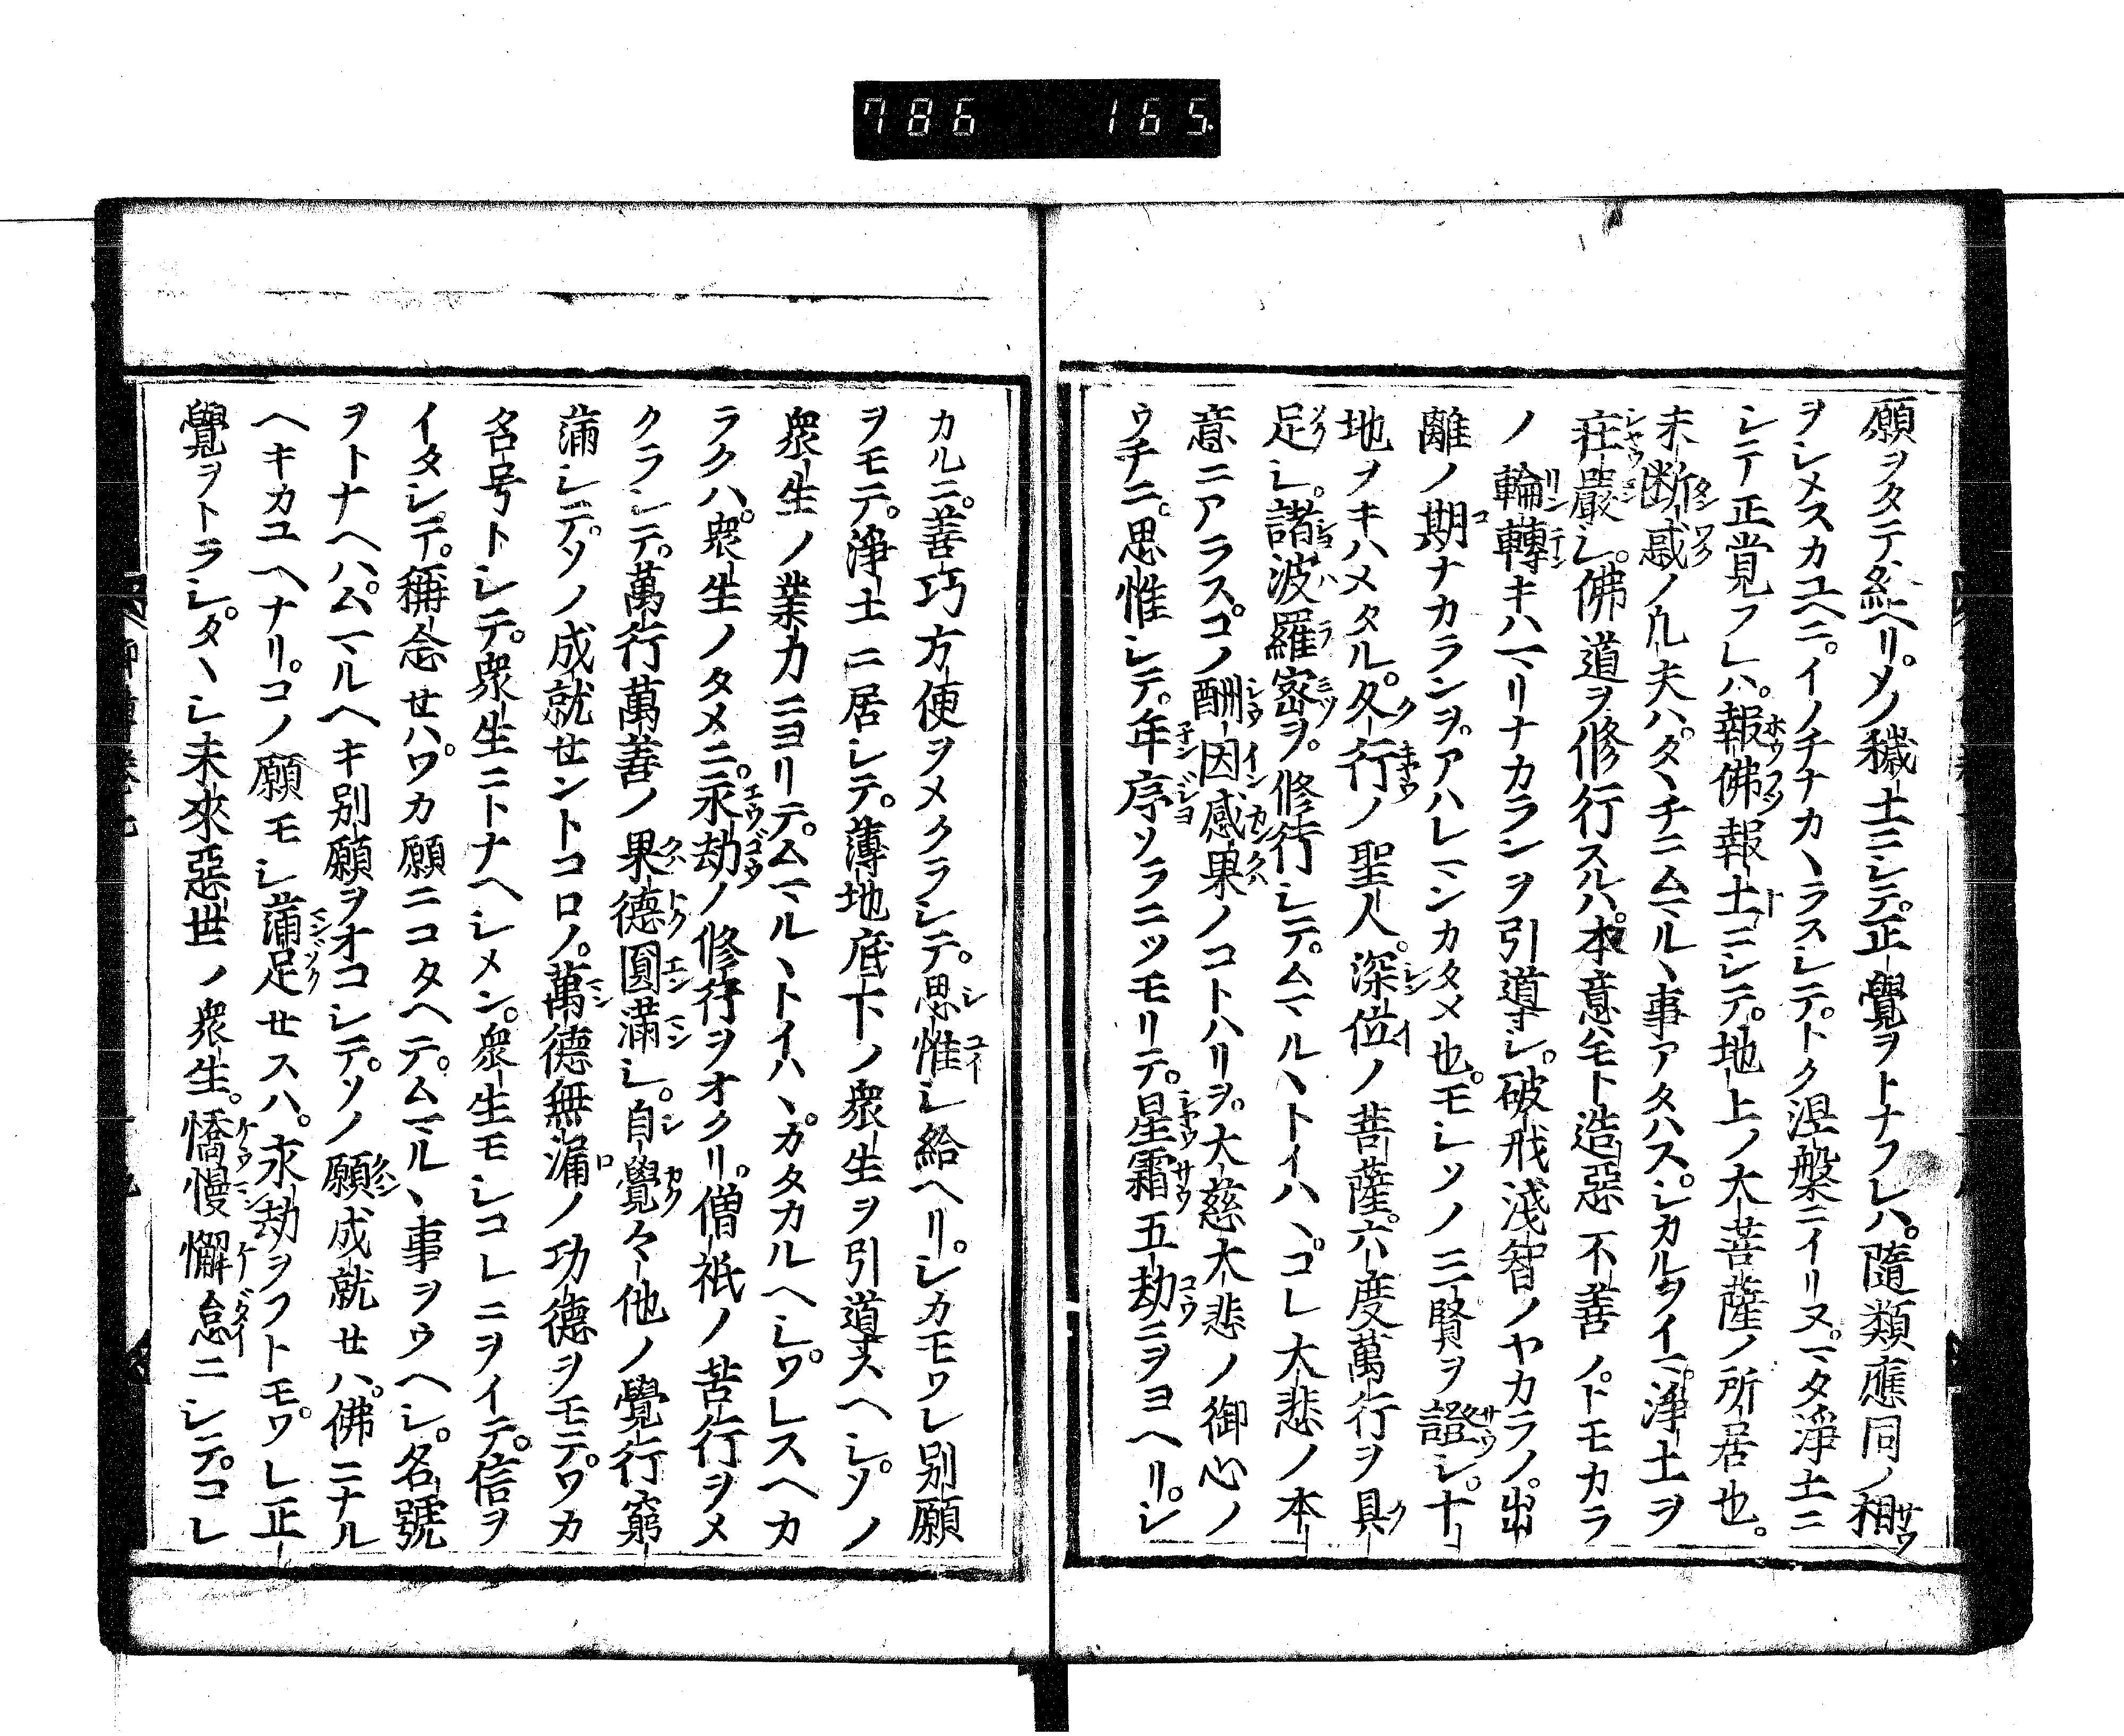 786 165
願ヲタテ給ヘリ。メ穢土ニシテ。正覺ヲトナフレハ。隨類應同ノ相
ヲシメスカユヘニ。イノチナカヽラスシテ。トク涅槃ニイリヌ。マタ淨土ニ
シテ正覚フレハ。報佛報土ニシテ。地上ノ大菩薩ノ所居也。
未断惑ノ凢夫ハ。タヽチニムマルヽ事アタハス。シカルヲイマ。淨土ヲ
荘嚴シ。佛道ヲ修行スルハ。本意ハモト造惡不善ノトモカラ
ノ輪轉キハマリナカランヲ引道シ。破戒淺智ノヤカラノ。出
離ノ期ナカランヲ。アハレマンカタメ也。モシソノ三賢ヲ證シ。十
地ヲキハメタル。久行ノ聖人。深位ノ菩薩。六度萬行ヲ具
足シ。諸波羅密ヲ。修行シテ。ムマルヽトイハヽ。コレ大悲ノ本
意ニアラス。コノ酬因感果ノコトハリヲ。大慈大悲ノ御心ノ
ウチニ。思惟シテ。年序ソラニツモリテ。星霜五劫ニヲヨヘリ。シ
カルニ。善巧方便ヲメクラシテ。思惟シ給ヘリ。シカモワレ別願
ヲモテ。淨土ニ居シテ。薄地底下ノ衆生ヲ引道スヘシ。ソノ
衆生ノ業力ニヨリテ。ムマルヽトイハヽ。カタカルヘシ。ワレスヘカ
ラクハ。衆生ノタメニ。永劫ノ修行ヲオクリ。僧祇ノ苦行ヲメ
クラシテ。萬行萬善ノ果德圓滿シ。自覺々他ノ覺行窮
滿シテ。ソノ成就セントコロノ。萬德無漏ノ功德ヲモテ。ワカ
名号トシテ。衆生ニトナヘシメン。衆生モシコレニヲイテ。信ヲ
イタシテ。稱念セハ。ワカ願ニコタヘテ。ムマルヽ事ヲウヘシ。名號
ヲトナヘハ。ムマルヘキ別願ヲオコシテ。ソノ願成就セハ。佛ニナル
ヘキカユヘナリ。コノ願モシ滿足セスハ。永劫ヲフトモ。ワレ正
覺ヲトラシ。タヽシ未來惡世ノ衆生。憍慢懈怠ニシテ。コレ